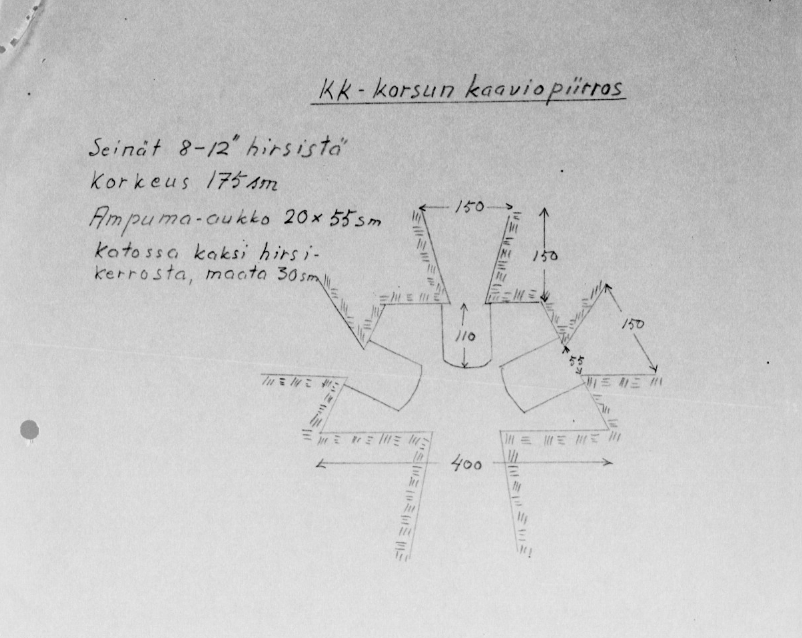 KK-korsun kaaviopiirros
Seinät 8-12" hirsistä
Korkeus 175 sm
Ampuma-aukko 20 x 55 sm
Katossa kaksi hirsi-
kerrosta, maata 30 sm
150
150
110
150
55
400